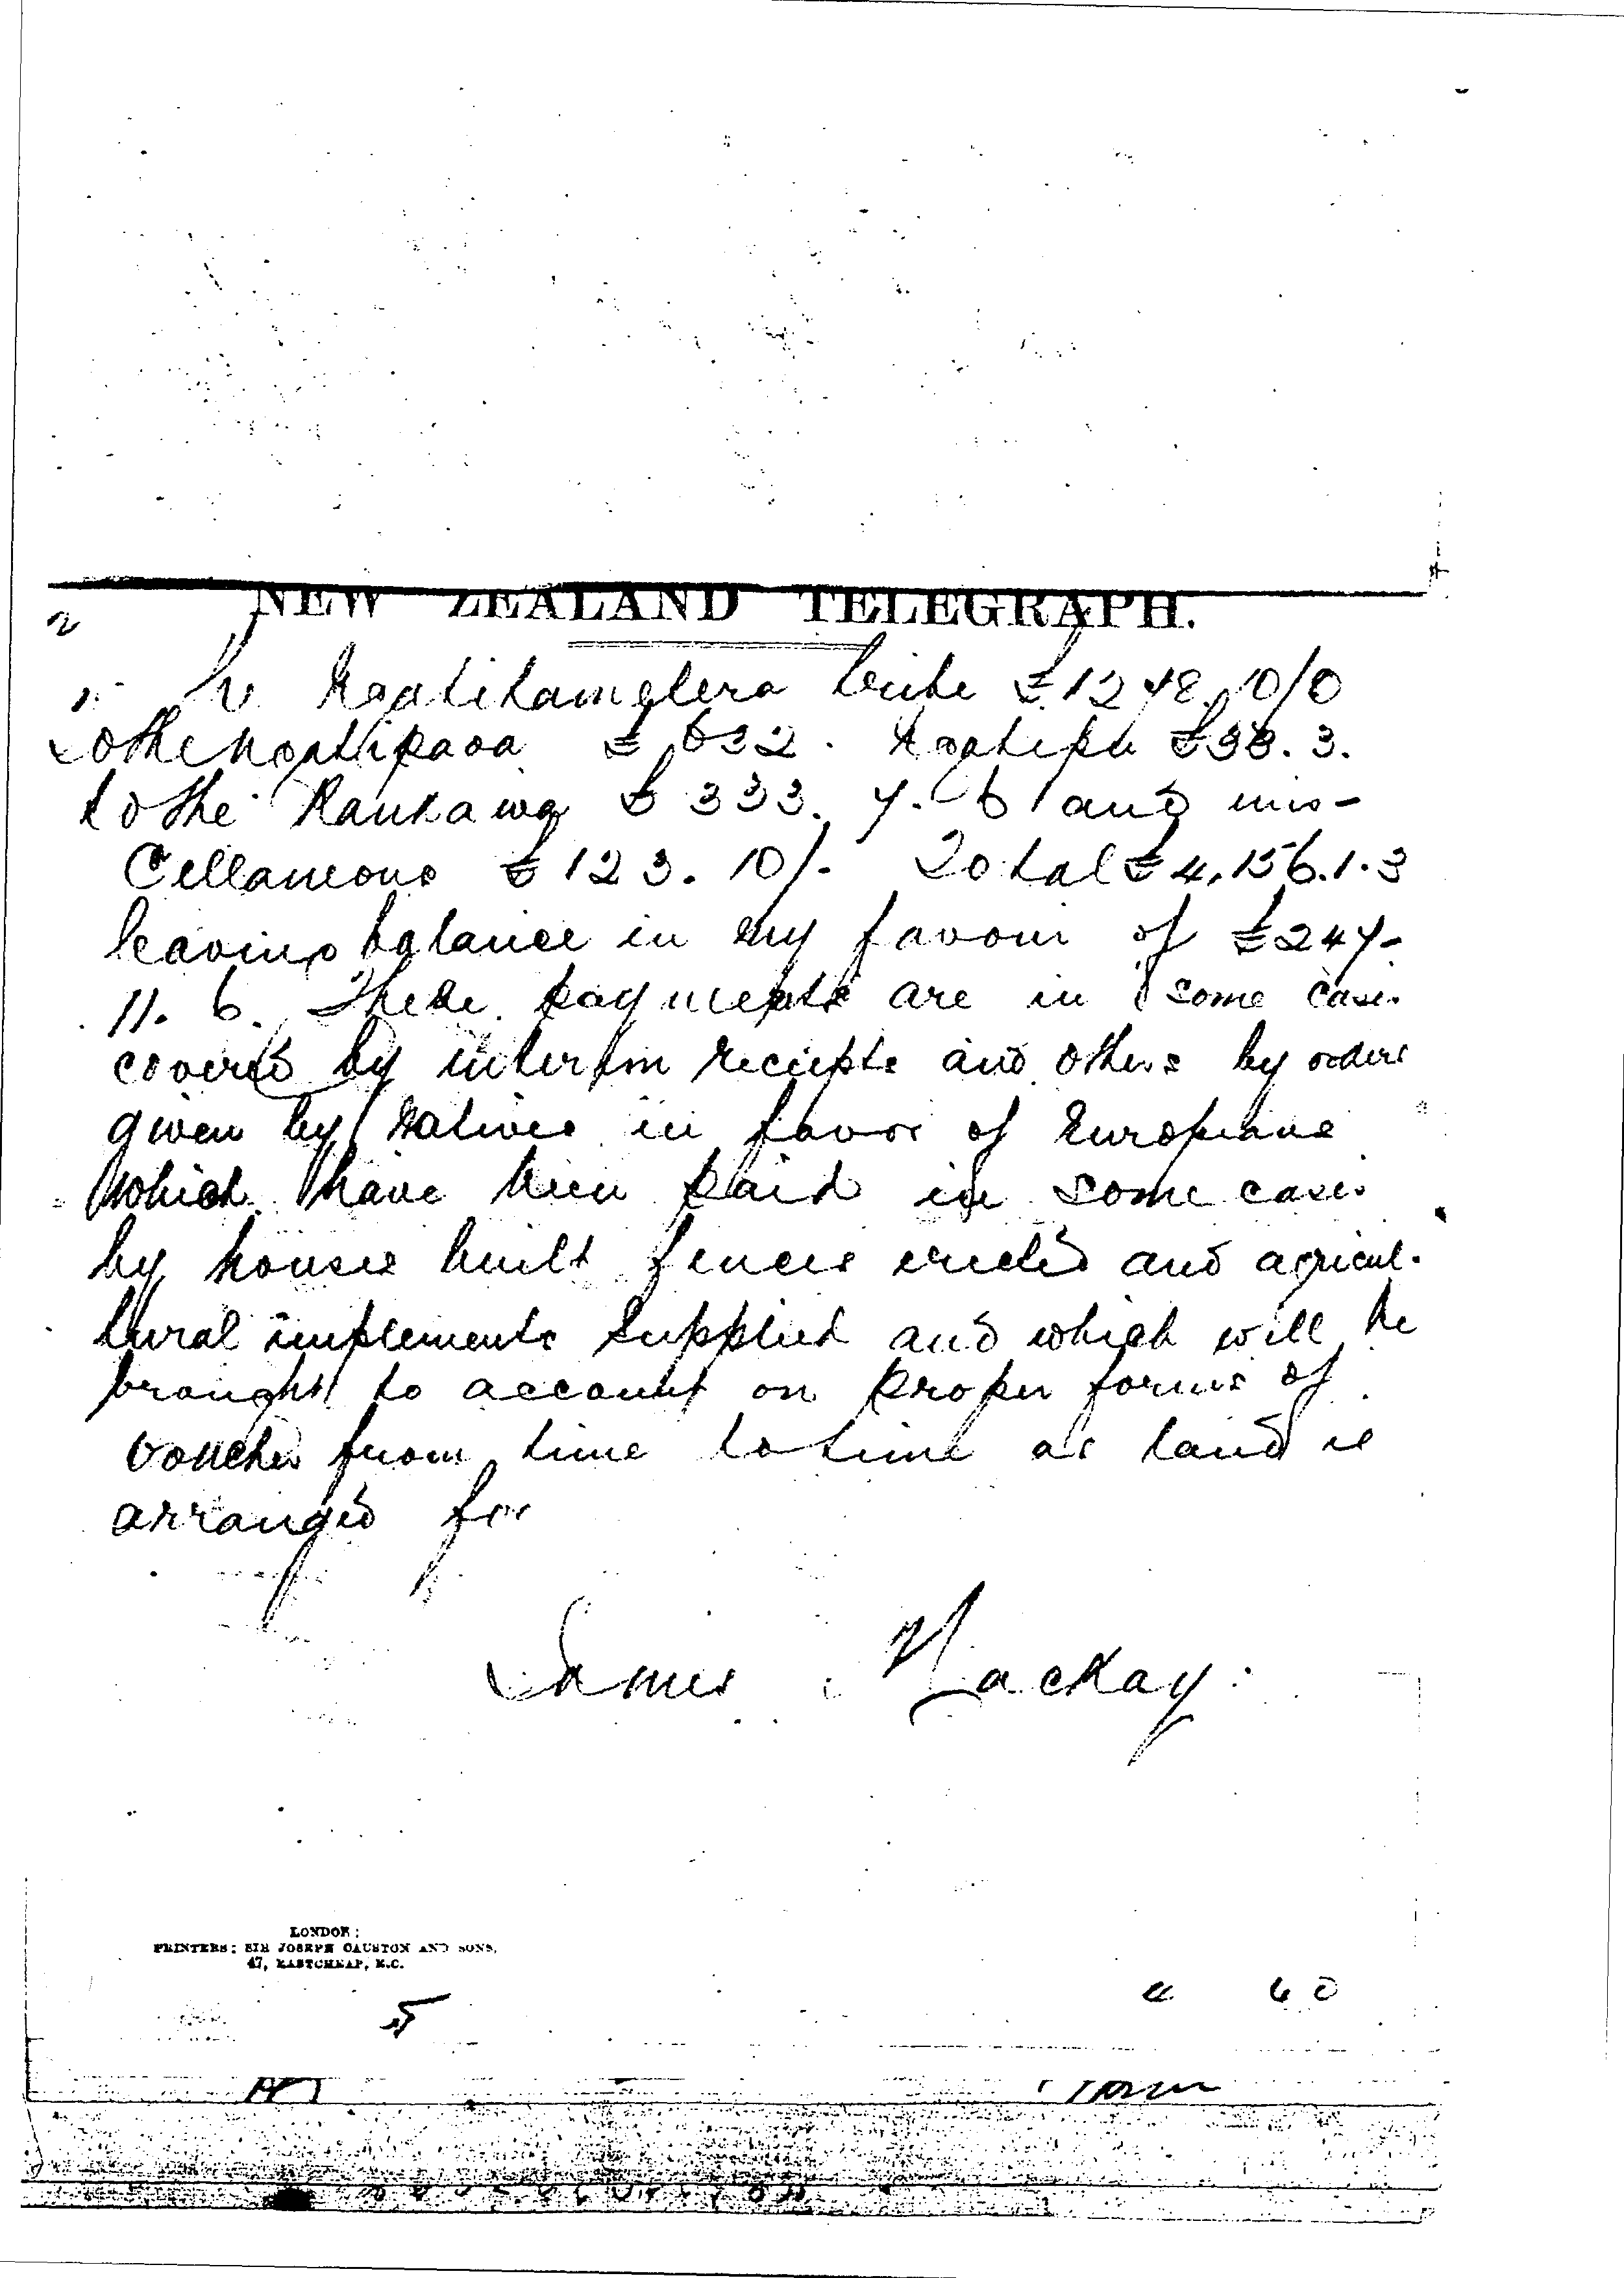 NEW ZEALAND TELEGRAPH.
2
Ngatitamatera tribe £1248. 10/0
to the Ngatipaoa £632. Ngatipu £38. 3.
to the Raukawa £333. 7. 6 and mis-
cellaneous £123. 10/- Total £4,156.1.3
leaving balance in my favour of £247-
11. 6. These payments are in some cases
covered by interim reciepts and others by orders
given by natives in favor of Europeans
which have been paid in some cases
by houses built fences erected and agricul-
tural implements supplied and which will be
brought to account on proper forms of
voucher from time to time as land is
arranged for
James Mackay.
LONDON:
PRINTERS: SIR JOSEPH CAUSTON AND SONS,
47, EASTCHEAP, E.C.
5
60